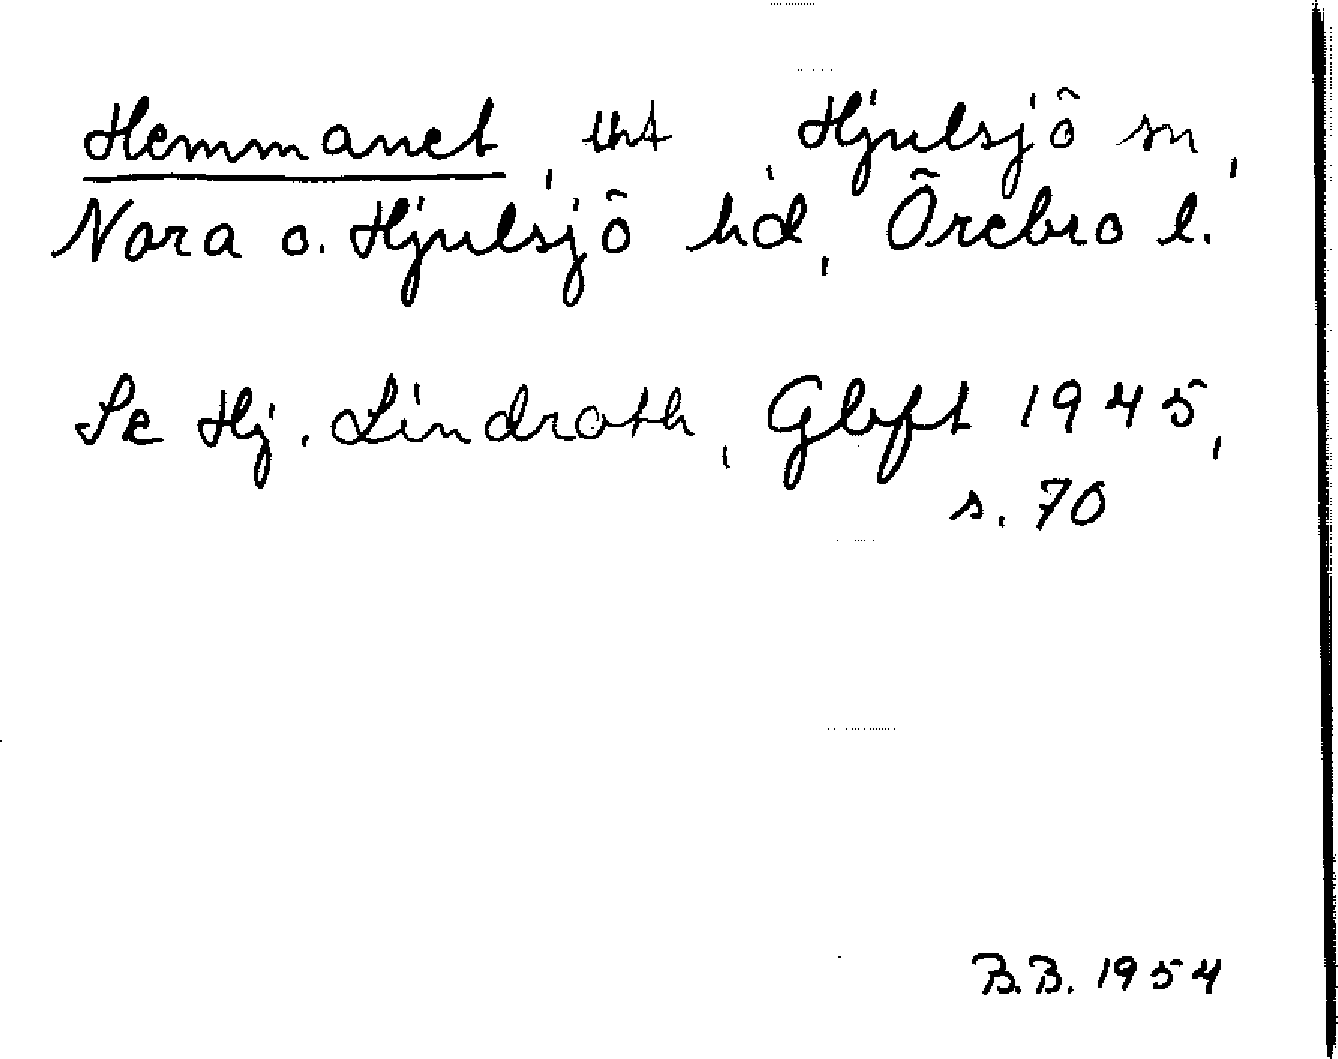 Hemmanet, tht, Hjulsjö sn,
Nora o. Hjulsjö hd, Örebro l.
Se Hj. Lindroth, Gbgft 1945,
s. 70
B.B. 1954